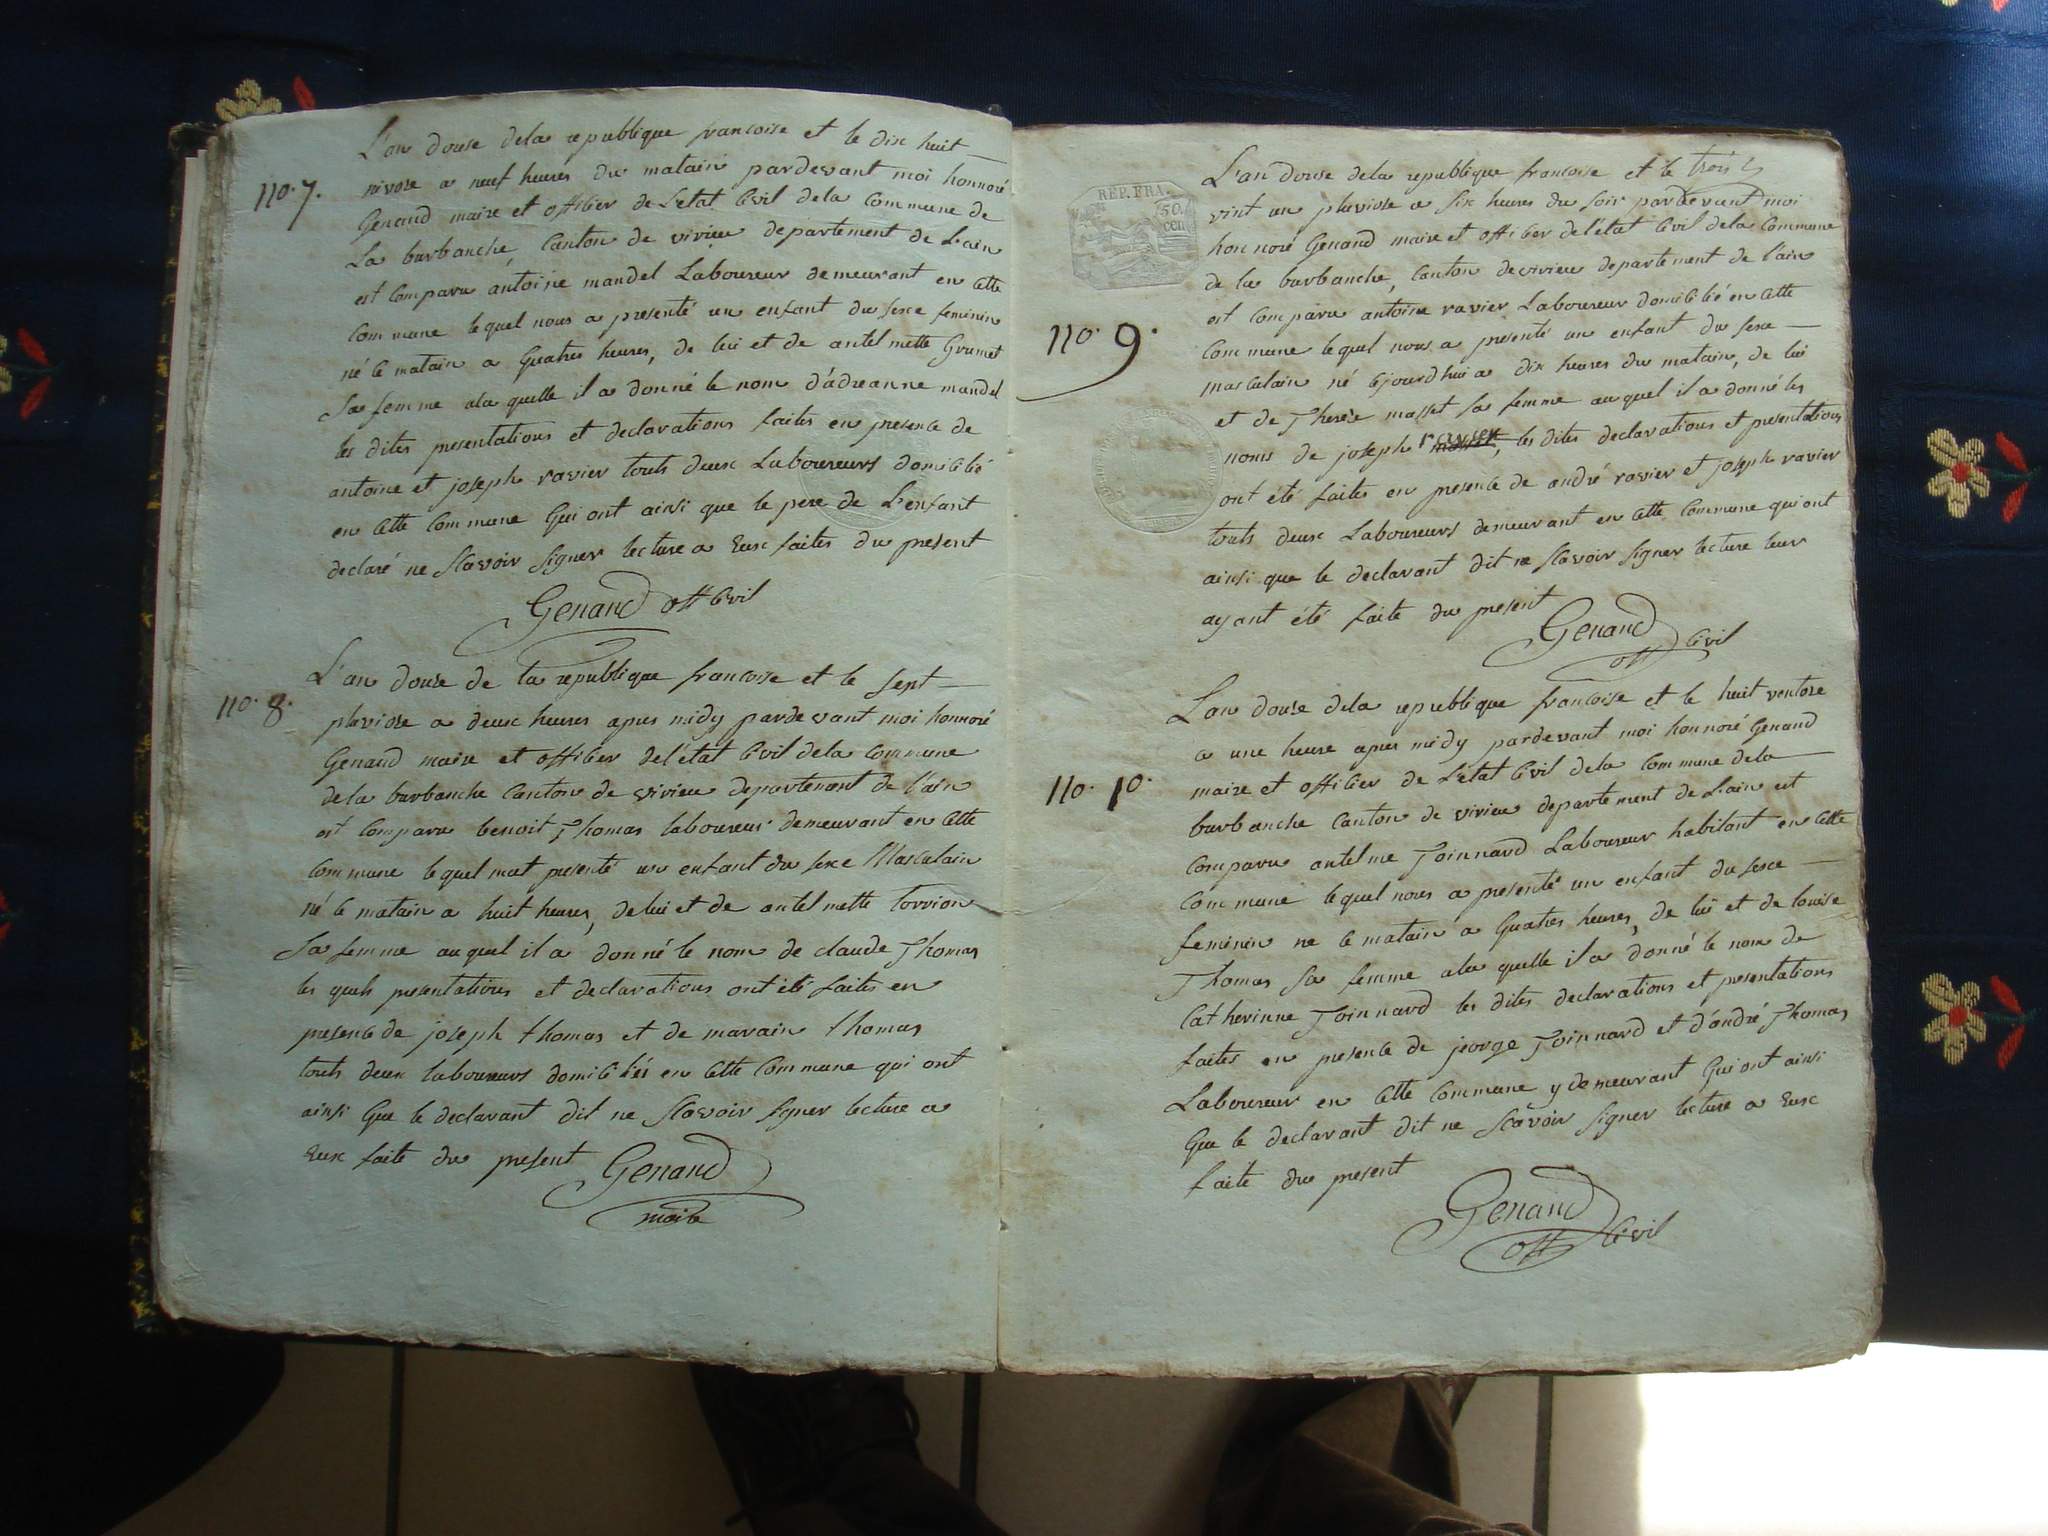 no. 7.
L'an douse dela republique francoise et le dix huit
nivose a neuf heures du matain pardevant moi honnoré
Genand maire et offilier de L'etat Civil dela Commune de
La burbanche, Canton de virieu departement de L'ain
est Comparu antoine mandel Laboureur demeurant en Cette
Commune lequel nous a presenté un enfant du sexe feminin
né le matain a Quatres heures, de lui et de antelmette Grumet
sa femme ala quelle il a donné le nom d'adreanne mandel
les dites presentations et declarations faites en presence de
antoine et joseph ravier touts deux Laboureurs domicilié
en Cette Commune Qui ont ainsi que le pere de L'enfant
declaré ne scavoir signer lecture a Eux faites du present
Genand off Civil
no. 8.
L'an douse de la republique francoise et le sept
pluviose a deux heures apres midy pardevant moi honnoré
Genand maire et offilier del'etat Civil dela Commune
dela burbanche Canton de virieu departement de l'ain
est Comparu benoit Thomas laboureur demeurant en Cette
Commune lequel mat presenté un enfant du sexe Masculain
né le matain a huit heures, de lui et de antelmette torrion
sa femme auquel il a donné le nom de claude Thomas
les quels presentations et declarations ont été faites en
presence de joseph thomas et de marain thomas
touts deux laboureurs domiciliés en Cette Commune qui ont
ainsi Que le declarant dit ne scavoir signer lecture a
Eux faite du present Genand
maire
REP. FRA.
50.
CEN
no. 9.
L'an douse dela republique francoise et le trois
vint un pluviose a six heures du soir pardevant moi
honnoré Genand maire et offilier de l'état Civil dela Commune
de la burbanche, Canton de virieu departement de l'ain
est Comparu antoine ravier Laboureur domicilié en Cette
Commune lequel nous a presenté un enfant du sexe
masculain né cejourdhui a dix heures du matain, de lui
et de Therese masset sa femme auquel il a donné les
noms de joseph ravier, les dites declarations et presentations
ont été faites en presence de andré ravier et joseph ravier
touts deux Laboureurs demeurant en Cette Commune qui ont
ainsi que le declarant dit ne scavoir signer lecture leur
ayant été faite du present Genand
off Civil
no. 10.
L'an douse dela republique francoise et le huit ventose
a une heure apres midy pardevant moi honnoré Genand
maire et offilier de L'etat Civil dela Commune dela
burbanche Canton de virieu departement de L'ain est
Comparu antelme Joinnard Laboureur habitant en Cette
Commune lequel nous a presenté un enfant du sexe
feminin ne le matain a Quatres heures, de lui et de louise
Thomas sa femme ala quelle il a donné le nom de
Catherinne Joinnard les dites declarations et presentations
faites en presence de jeorge Joinnard et d'andré Thomas
Laboureur en Cette Commune y demeurant Qui ont ainsi
Que le declarant dit ne scavoir signer lecture a Eux
faite du present
Genand
off Civil